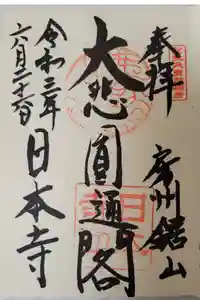 奉拝
房州鋸山
大悲圓通閣
令和三年
六月二十六日
日本寺